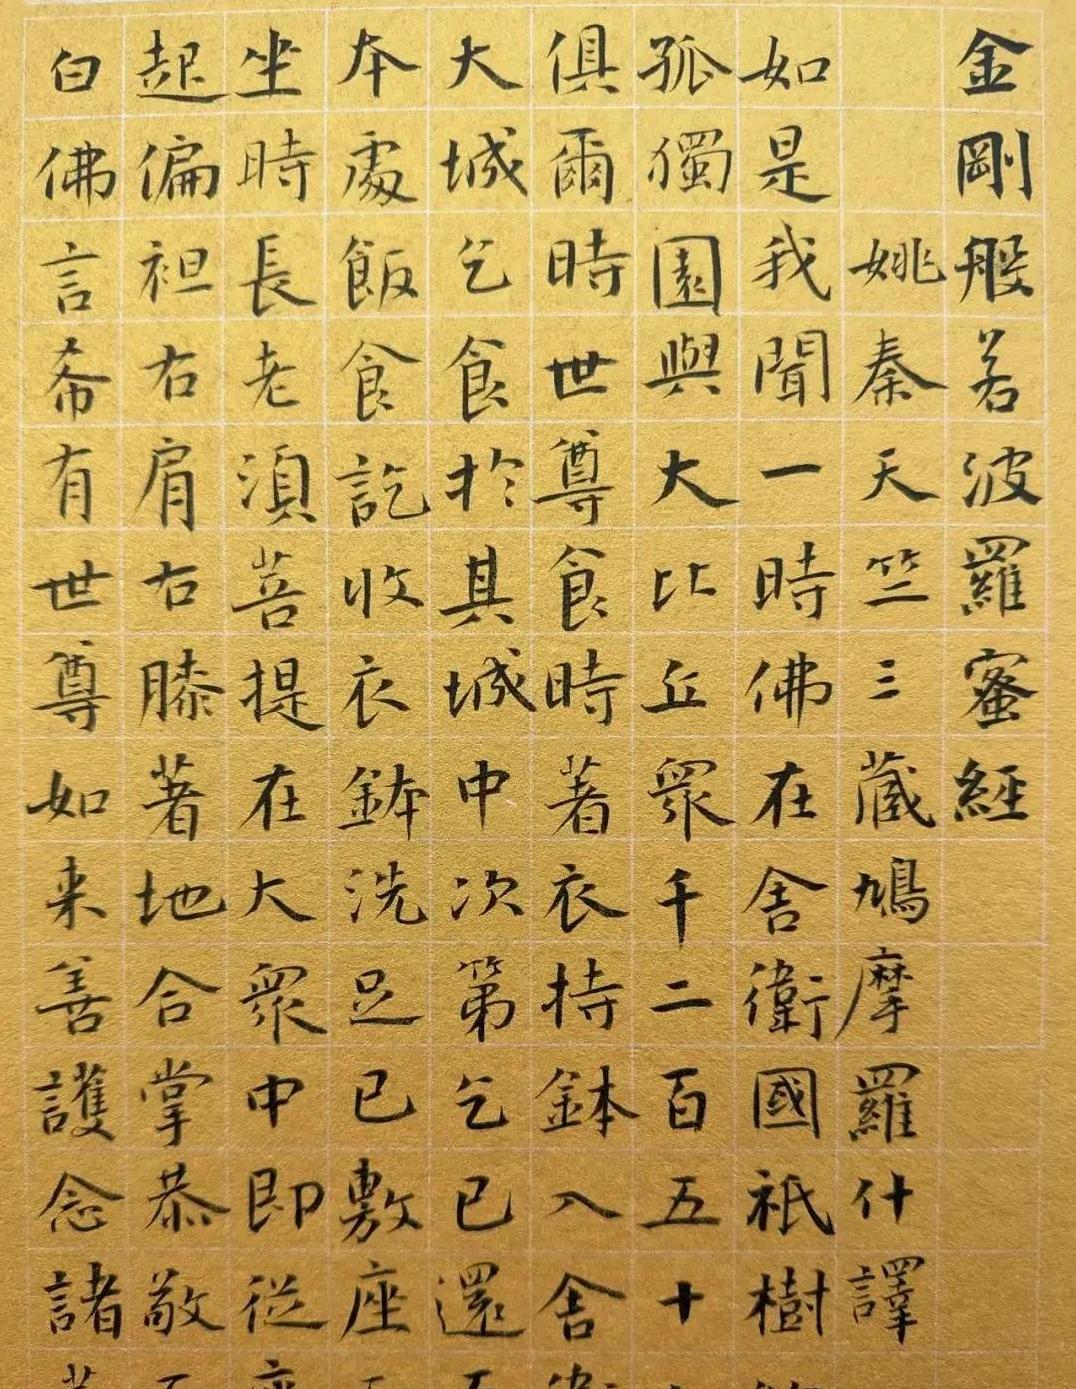 金剛般若波羅蜜經
姚秦天竺三藏鳩摩羅什譯
如是我聞一時佛在舍衛國祇樹
孤獨園與大比丘衆千二百五十
俱爾時世尊食時著衣持鉢入舍
大城乞食於其城中次第乞已還
本處飯食訖收衣鉢洗足已敷座
坐時長老須菩提在大衆中即從
起偏袒右肩右膝著地合掌恭敬
白佛言希有世尊如来善護念諸